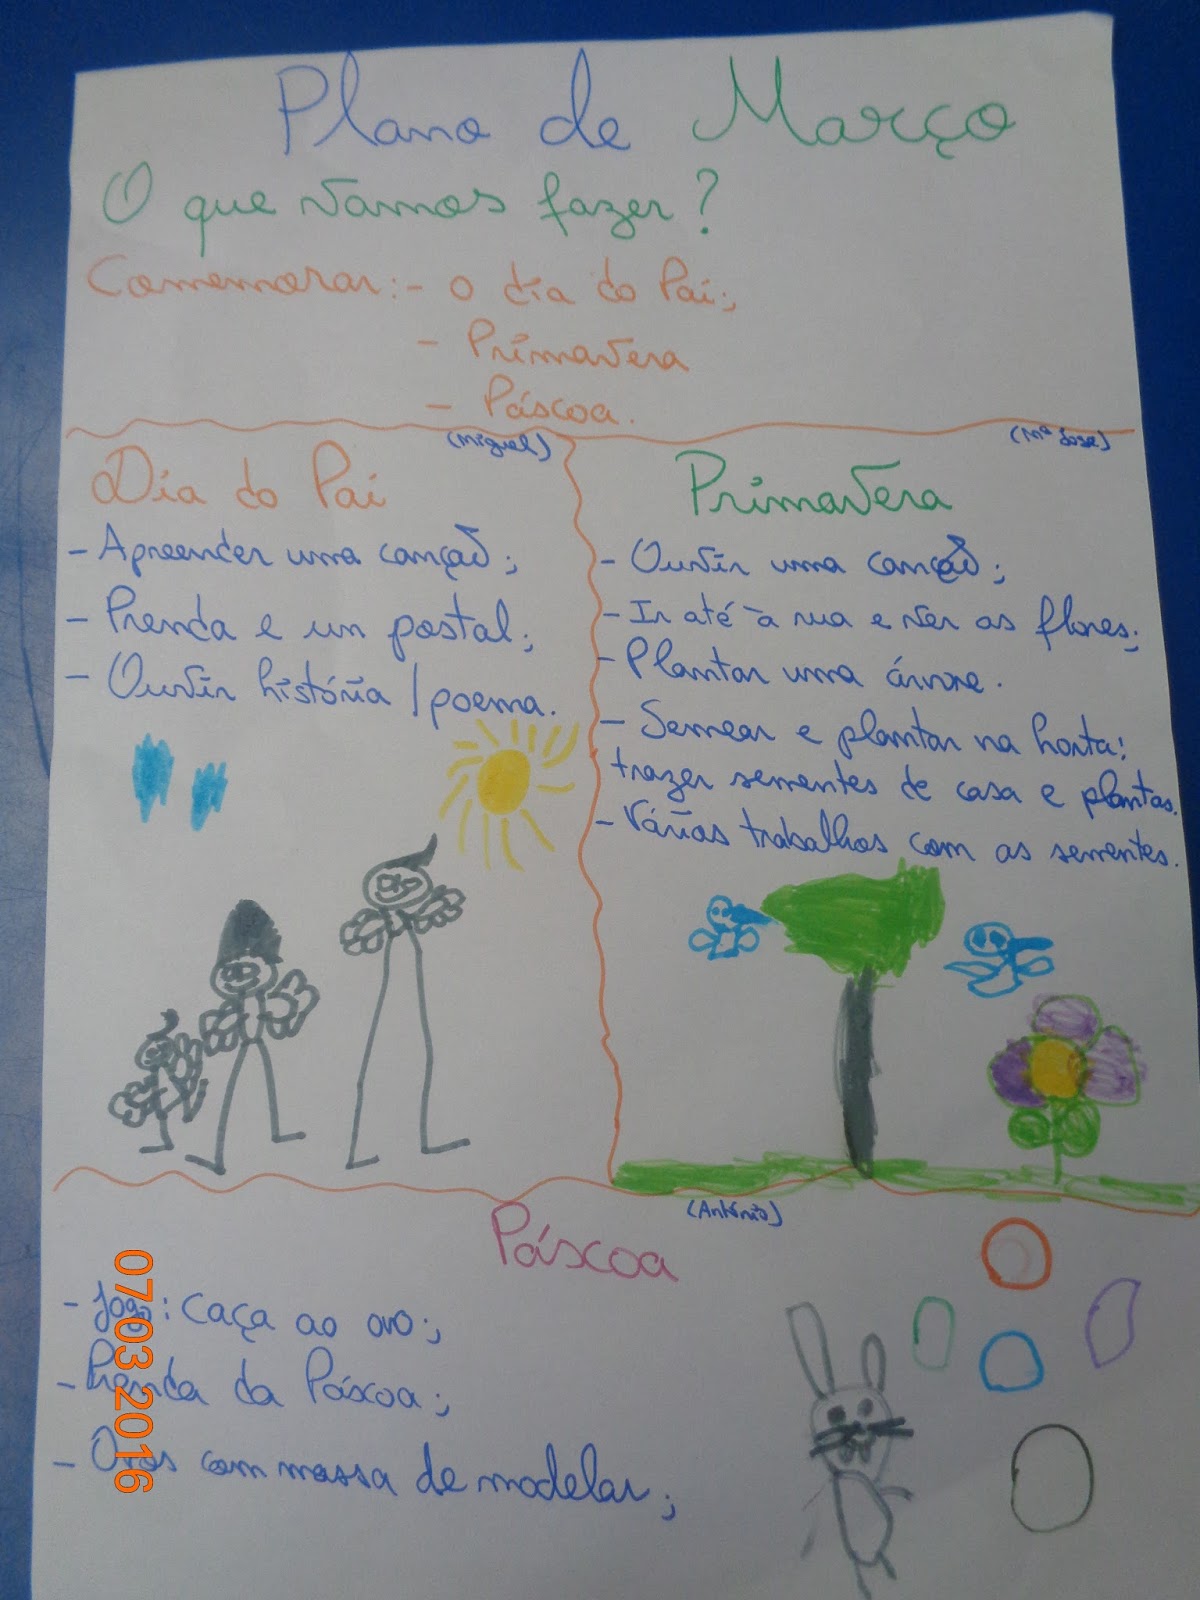 Plano de Março
O que vamos fazer?
Comemorar:- o dia do Pai;
- Primavera
- Páscoa.
(Miguel)
(Mª José)
Dia do Pai
- Apreender uma canção;
- Prenda e um postal;
- Ouvir história / poema.
Primavera
- Ouvir uma canção;
- Ir até à rua e ver as flores;
- Plantar uma árvore.
- Semear e plantar na horta:
trazer sementes de casa e plantas.
- Vários trabalhos com as sementes.
(António)
Páscoa
- Jogo: Caça ao ovo;
- Prenda da Páscoa;
- Ovos com massa de modelar;
07.03.2016